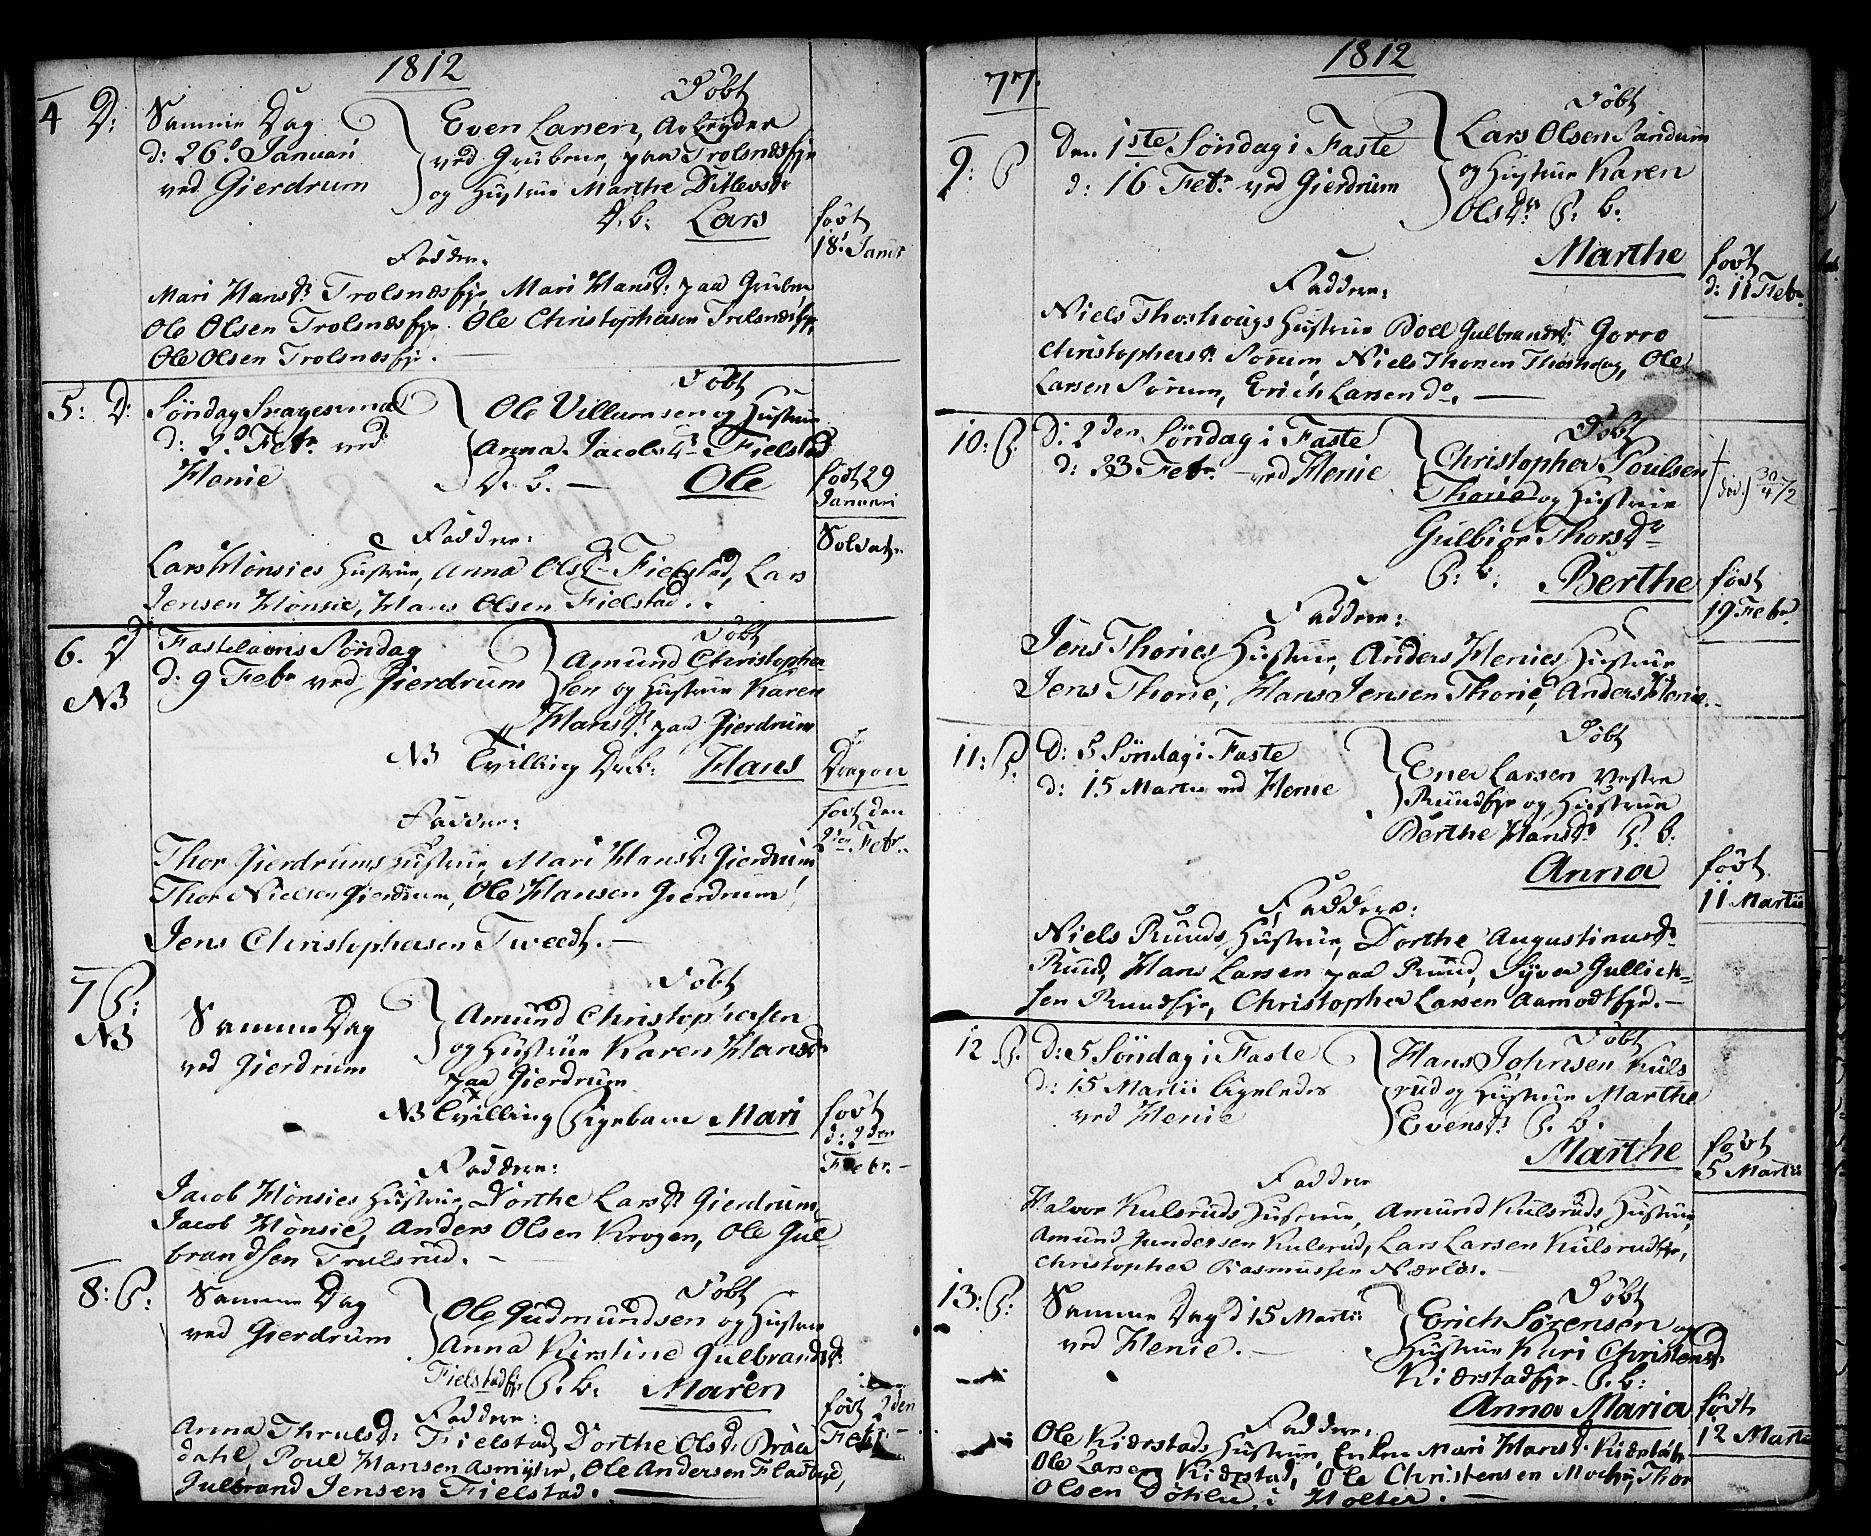 1812
4 D:
Samme Dag
d: 26de Januari
ved Gierdrum
Døbt
Even Larsen, Arbeyder
ved Gruberne, paa Trolsnæseye
og Hustrue Marthe Ditlevsdr
D. b: Lars
født
18de Janr
Faddere:
Mari Hansdr Trolsnæseye, Mari Hansd: paa Gruben
Ole Olsen Trolsnæseye. Ole Christophersen Trolsnæseye,
Ole Olsen Trolsnæseye. —
5: D:
Søndag Sexagesima
d: 2d Febr. ved
Henie
Døbt
Ole Villumsen og Hustrue
Anna Jacobsdr Fielstad
D. b. — Ole
født 29
Januari
Soldat.
Faddere:
Lars Hønsies Hustrue, Anna Olsdr Fielstad, Lars
Jensen Hønsie, Hans Olsen Fielstad.
6. D
NB
Fastelavns Søndag
d: 9 Febr ved Gierdrum
Døbt
Amund Christopher
sen og Hustrue Karen
Hansdr paa Gierdrum
NB Tvilling Dr.b: Hans
Dragon
født den
2den Febr.
Faddere:
Thor Gierdrums Hustrue, Mari Hansdr Gierdrum,
Thor Nielsen Gierdrum, Ole Hansen Gierdrum,
Jens Christophersen Tweedt. —
7 P:
NB
Samme Dag
ved Gierdrum
Døbt
Amund Christophersen
og Hustrue Karen Hansdr
paa Gierdrum
NB Tvilling Pigebarn Mari
født
d: 2den
Febr. —
Faddere:
Jacob Hønsies Hustrue, Dorthe Larsdr Gierdrum,
Jacob Hønsie, Anders Olsen Krogen, Ole Gul-
brandsen Trulsrud. —
8: P:
Samme Dag
ved Gierdrum
Døbt
Ole Gudmundsen og Hustrue
Anna Kirstine Gulbrandsd:
Fielstadeye P. b. Maren
født 2den
Febr —
Faddere:
Anna Thrulsd: Fielstad, Dorthe Olsd: Braa
dahl, Poul Hansen Asmyhr, Ole Andersen Fladbye,
Gulbrand Jensen Fielstad. —
77.
1812
9: P
Den 1ste Søndag i Faste
d: 16 Febr ved Gierdrum
Døbt
Lars Olsen Sandum
og Hustrue Karen
Olsdr P: b:
Marthe
født
d: 11 Febr.
Faddere:
Niels Thoshougs Hustrue Boel Gulbrandsd: Gorro
Christophersdr Sørum, Niels Thorsen Thoshoug, Ole
Larsen Sørum, Erich Larsen do. —
10: P.
D: 2den Søndag i Faste
d: 23 Febr. — ved Henie
Døbt
Christopher Poulsen
Thorie og Hustrue
Gulbiør Thorsdr
P: b: Berthe
† død 30/4 72
født
19 Febr.
Faddere:
Jens Thories Hustrue, Anders Henies Hustrue
Jens Thorie, Hans Jensen Thorie, Anders Henie. -
11: P.
D: 5 Søndag i Faste
d: 15 Martii ved Henie
Døbt
Ener Larsen Vestre
Rundeye og Hustrue
Berthe Hansdr P. b:
Anna
født
11 Martii
Faddere:
Niels Runds Hustrue, Dorthe Augustinusdr
Ruud, Hans Larsen paa Ruud, Syver Gullich-
sen Rundeye, Christopher Larsen Aamodteye. —
12 P.
D: 5 Søndag i Faste
d: 15 Martii ligeledes
ved Henie
Døbt
Hans Johnsen Kuls
rud og Hustrue Marthe
Evensdr P. b.
Marthe
født
5 Martii
Faddere
Halvor Kulsruds Hustrue, Amund Kulsruds Hustrue,
Amund Gundersen Kulsrud, Lars Larsen Kulsrudeye,
Christopher Rasmussen Nærløs. —
13: P:
Samme Dag d 15 Martii
ved Henie. —
Døbt
Erich Sørensen og
Hustrue Kari Christensd
Kiærstadeye P. b:
Anna Maria
født
12 Martii
Faddere:
Ole Kiærstads Hustrue, Enken Mari Hansd:
Ole Larsen Kiærstad, Ole Christensen Thor
Olsen Døhlen, i Holter. —